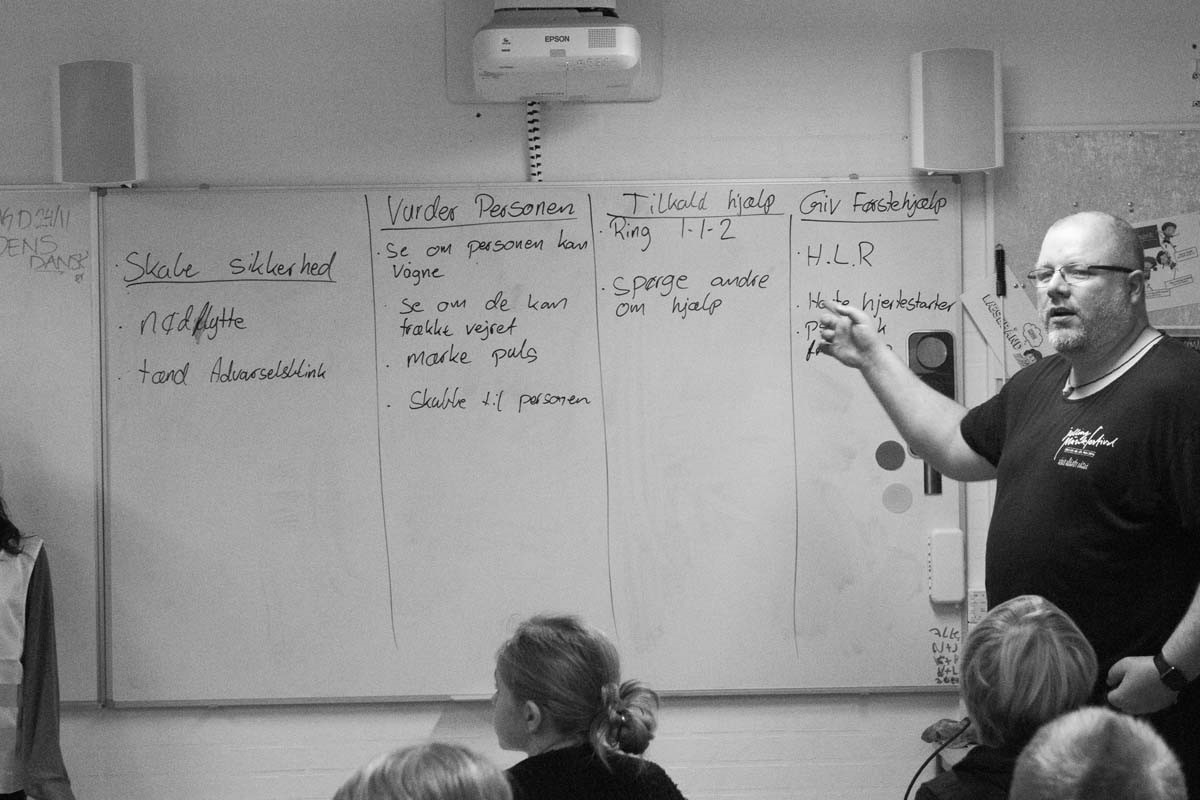 EPSON
24/11
DENS
DANSK
Skabe sikkerhed
· nødflytte
· tænd Advarselsblink
Vurder Personen
· Se om personen kan
vågne
· Se om de kan
trække vejret
· mærke puls
· Skabbe til personen
Tilkald hjælp
· Ring 1-1-2
· Spørge andre
om hjælp
Giv Førstehjælp
· H.L.R
· hjertestarter